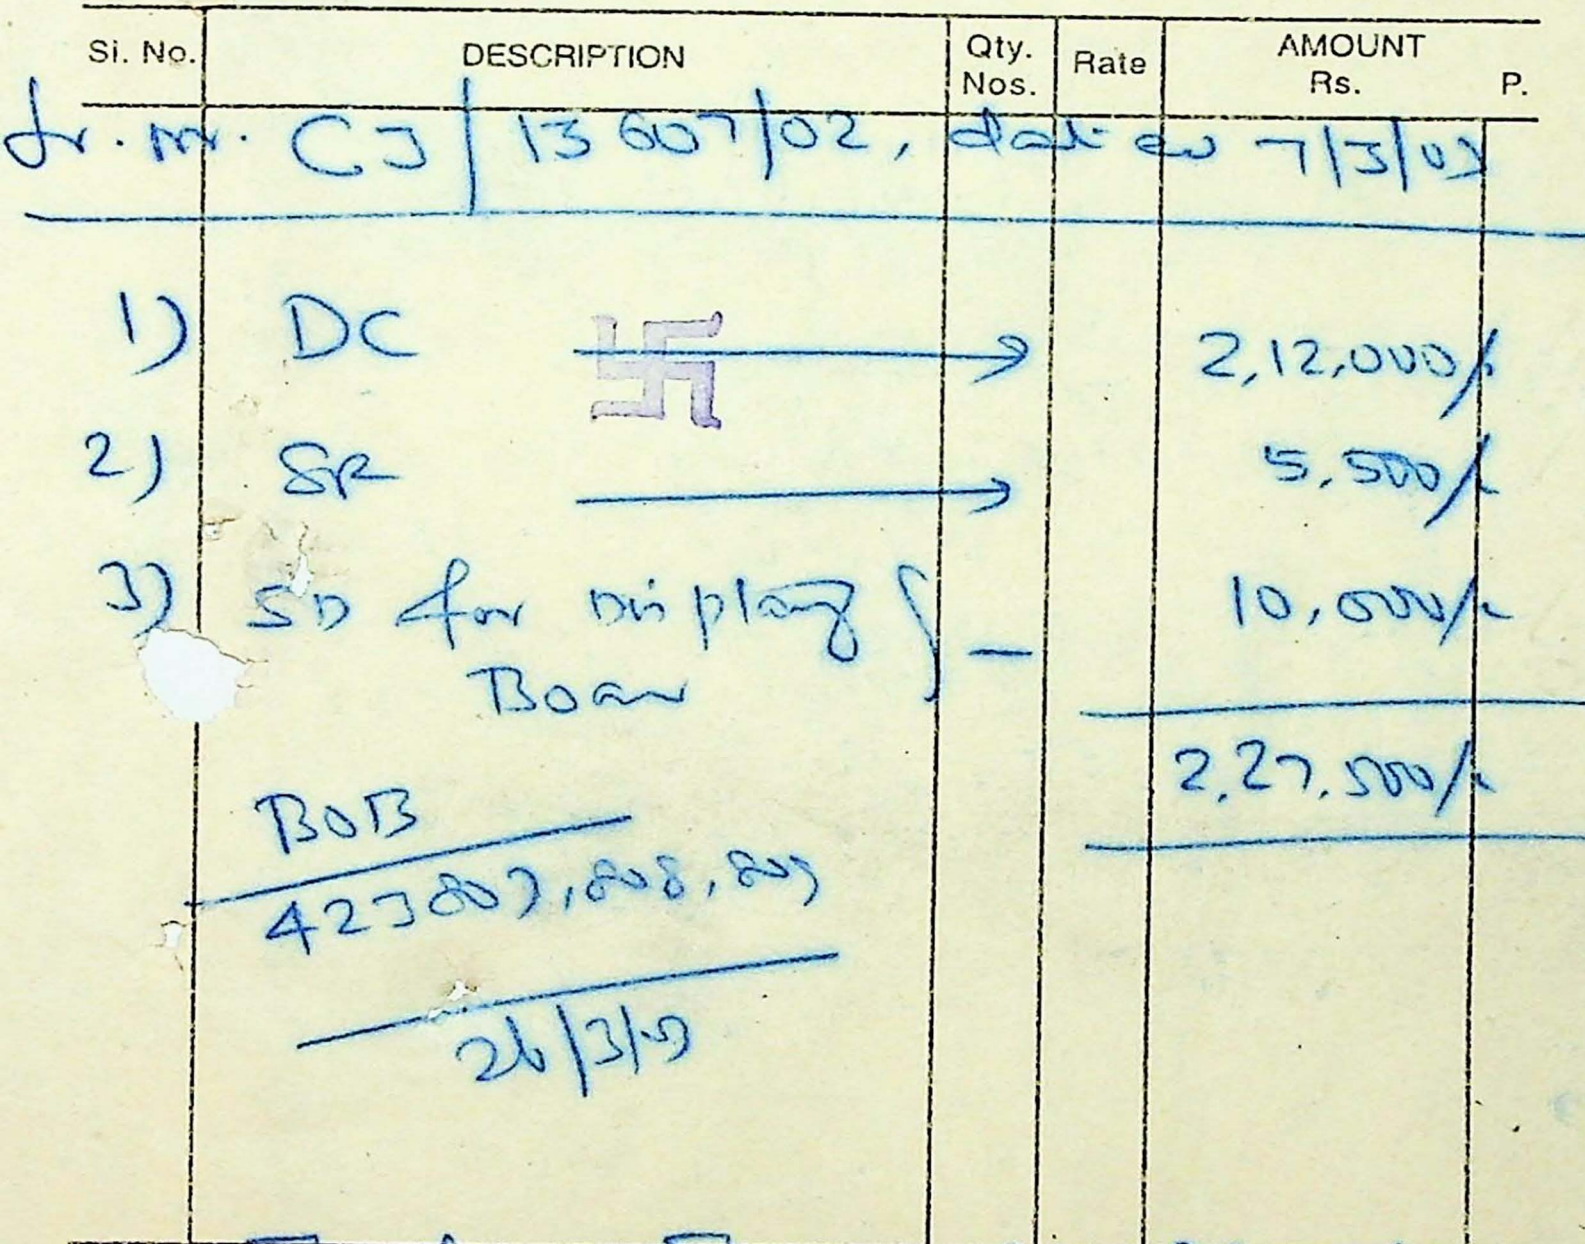 Si. No. DESCRIPTION Qty. Nos. Rate AMOUNT Rs. P.
Lr. Nr. CJ/13607/02, dated 7/3/03
1) DC → 2,12,000/-
2) SR → 5,500/-
3) SD for Display Board — 10,000/-
2,27,500/-
BOB
423807, 808, 809
26/3/03